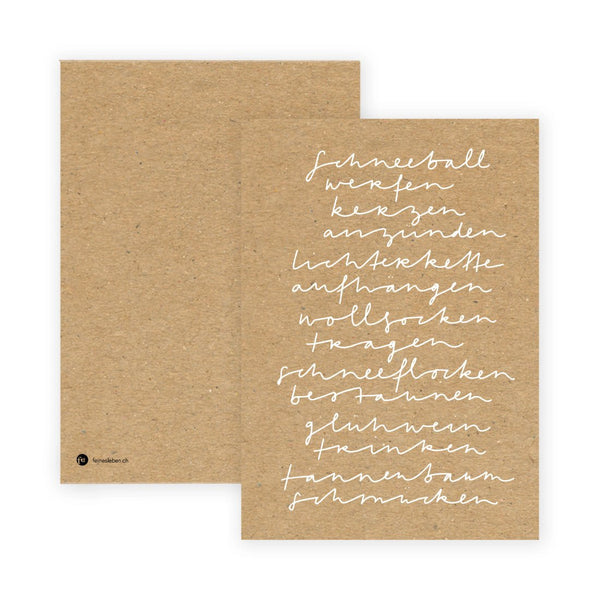 schneeball
werfen
kerzen
anzünden
lichterkette
aufhängen
wollsocken
tragen
schneeflocken
bestaunen
glühwein
trinken
tannenbaum
schmücken
feinesleben.ch